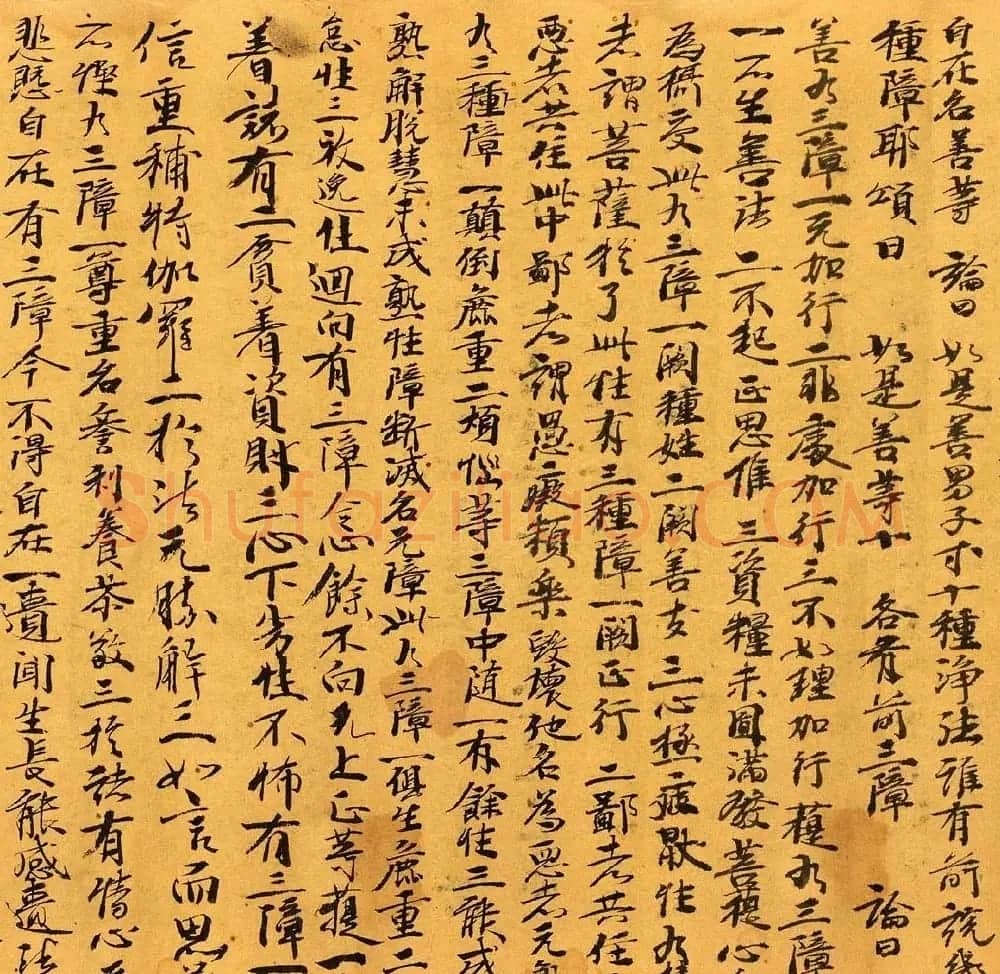 自在名善等 論曰如是善男子等十種淨法誰有前説幾
種障耶頌曰 如是善等十 各有前三障 論曰
善有三障一无加行二非處加行三不如理加行菩提有三障
一不生善法二不起正思惟三資糧未圓滿發菩提心
為攝受此有三障一闕種姓二闕善友三心極疲厭性有
者謂菩薩於了此性有三種障一闕正行二鄙者共住
惡者共住此中鄙者謂愚癡類樂毀壞他名為惡者无
有三種障一顛倒麁重二煩惱等三障中随一有餘性三能成
熟解脫慧未成熟性障斷滅名无障此有三障一俱生麁重二
怠性三放逸性迴向有三障令心餘不向无上正等菩提一
著諸有二貪著資財三心下劣性不怖有三障一
信重補特伽羅二於法无勝解三如言而思
不慳有三障一尊重名譽利養恭敬三於諸有情心无
悲愍自在有三障令不得自在一匱聞生長能感匱法
Shufaziliao.COM